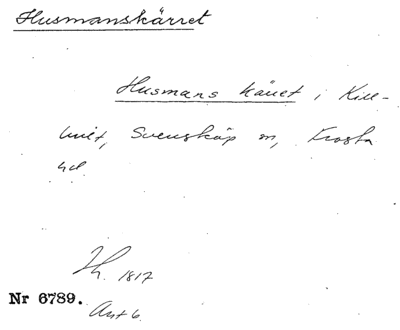 Husmanskärret
Husmans käuet i Kill-
hult, Svensköp sn, Frosta
hd
Lh. 1817
Nr 6789.
Akt 6